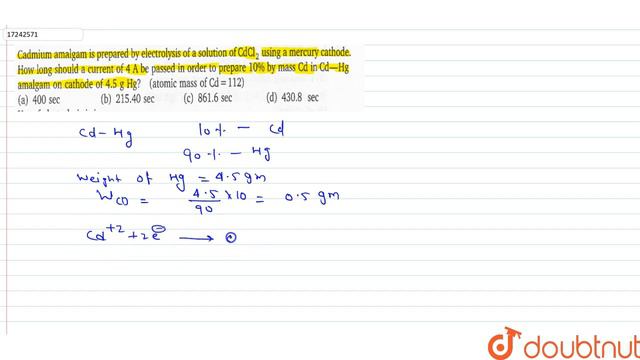 17242571
Cadmium amalgam is prepared by electrolysis of a solution of CdCl₂ using a mercury cathode.
How long should a current of 4 A be passed in order to prepare 10% by mass Cd in Cd—Hg
amalgam on cathode of 4.5 g Hg? (atomic mass of Cd = 112)
(a) 400 sec (b) 215.40 sec (c) 861.6 sec (d) 430.8 sec
Cd-Hg 10% - Cd
90% - Hg
Weight of Hg = 4.5 gm
W_CD = 4.5/90 × 10 = 0.5 gm
Cd⁺² + 2e⁻ →
doubtnut